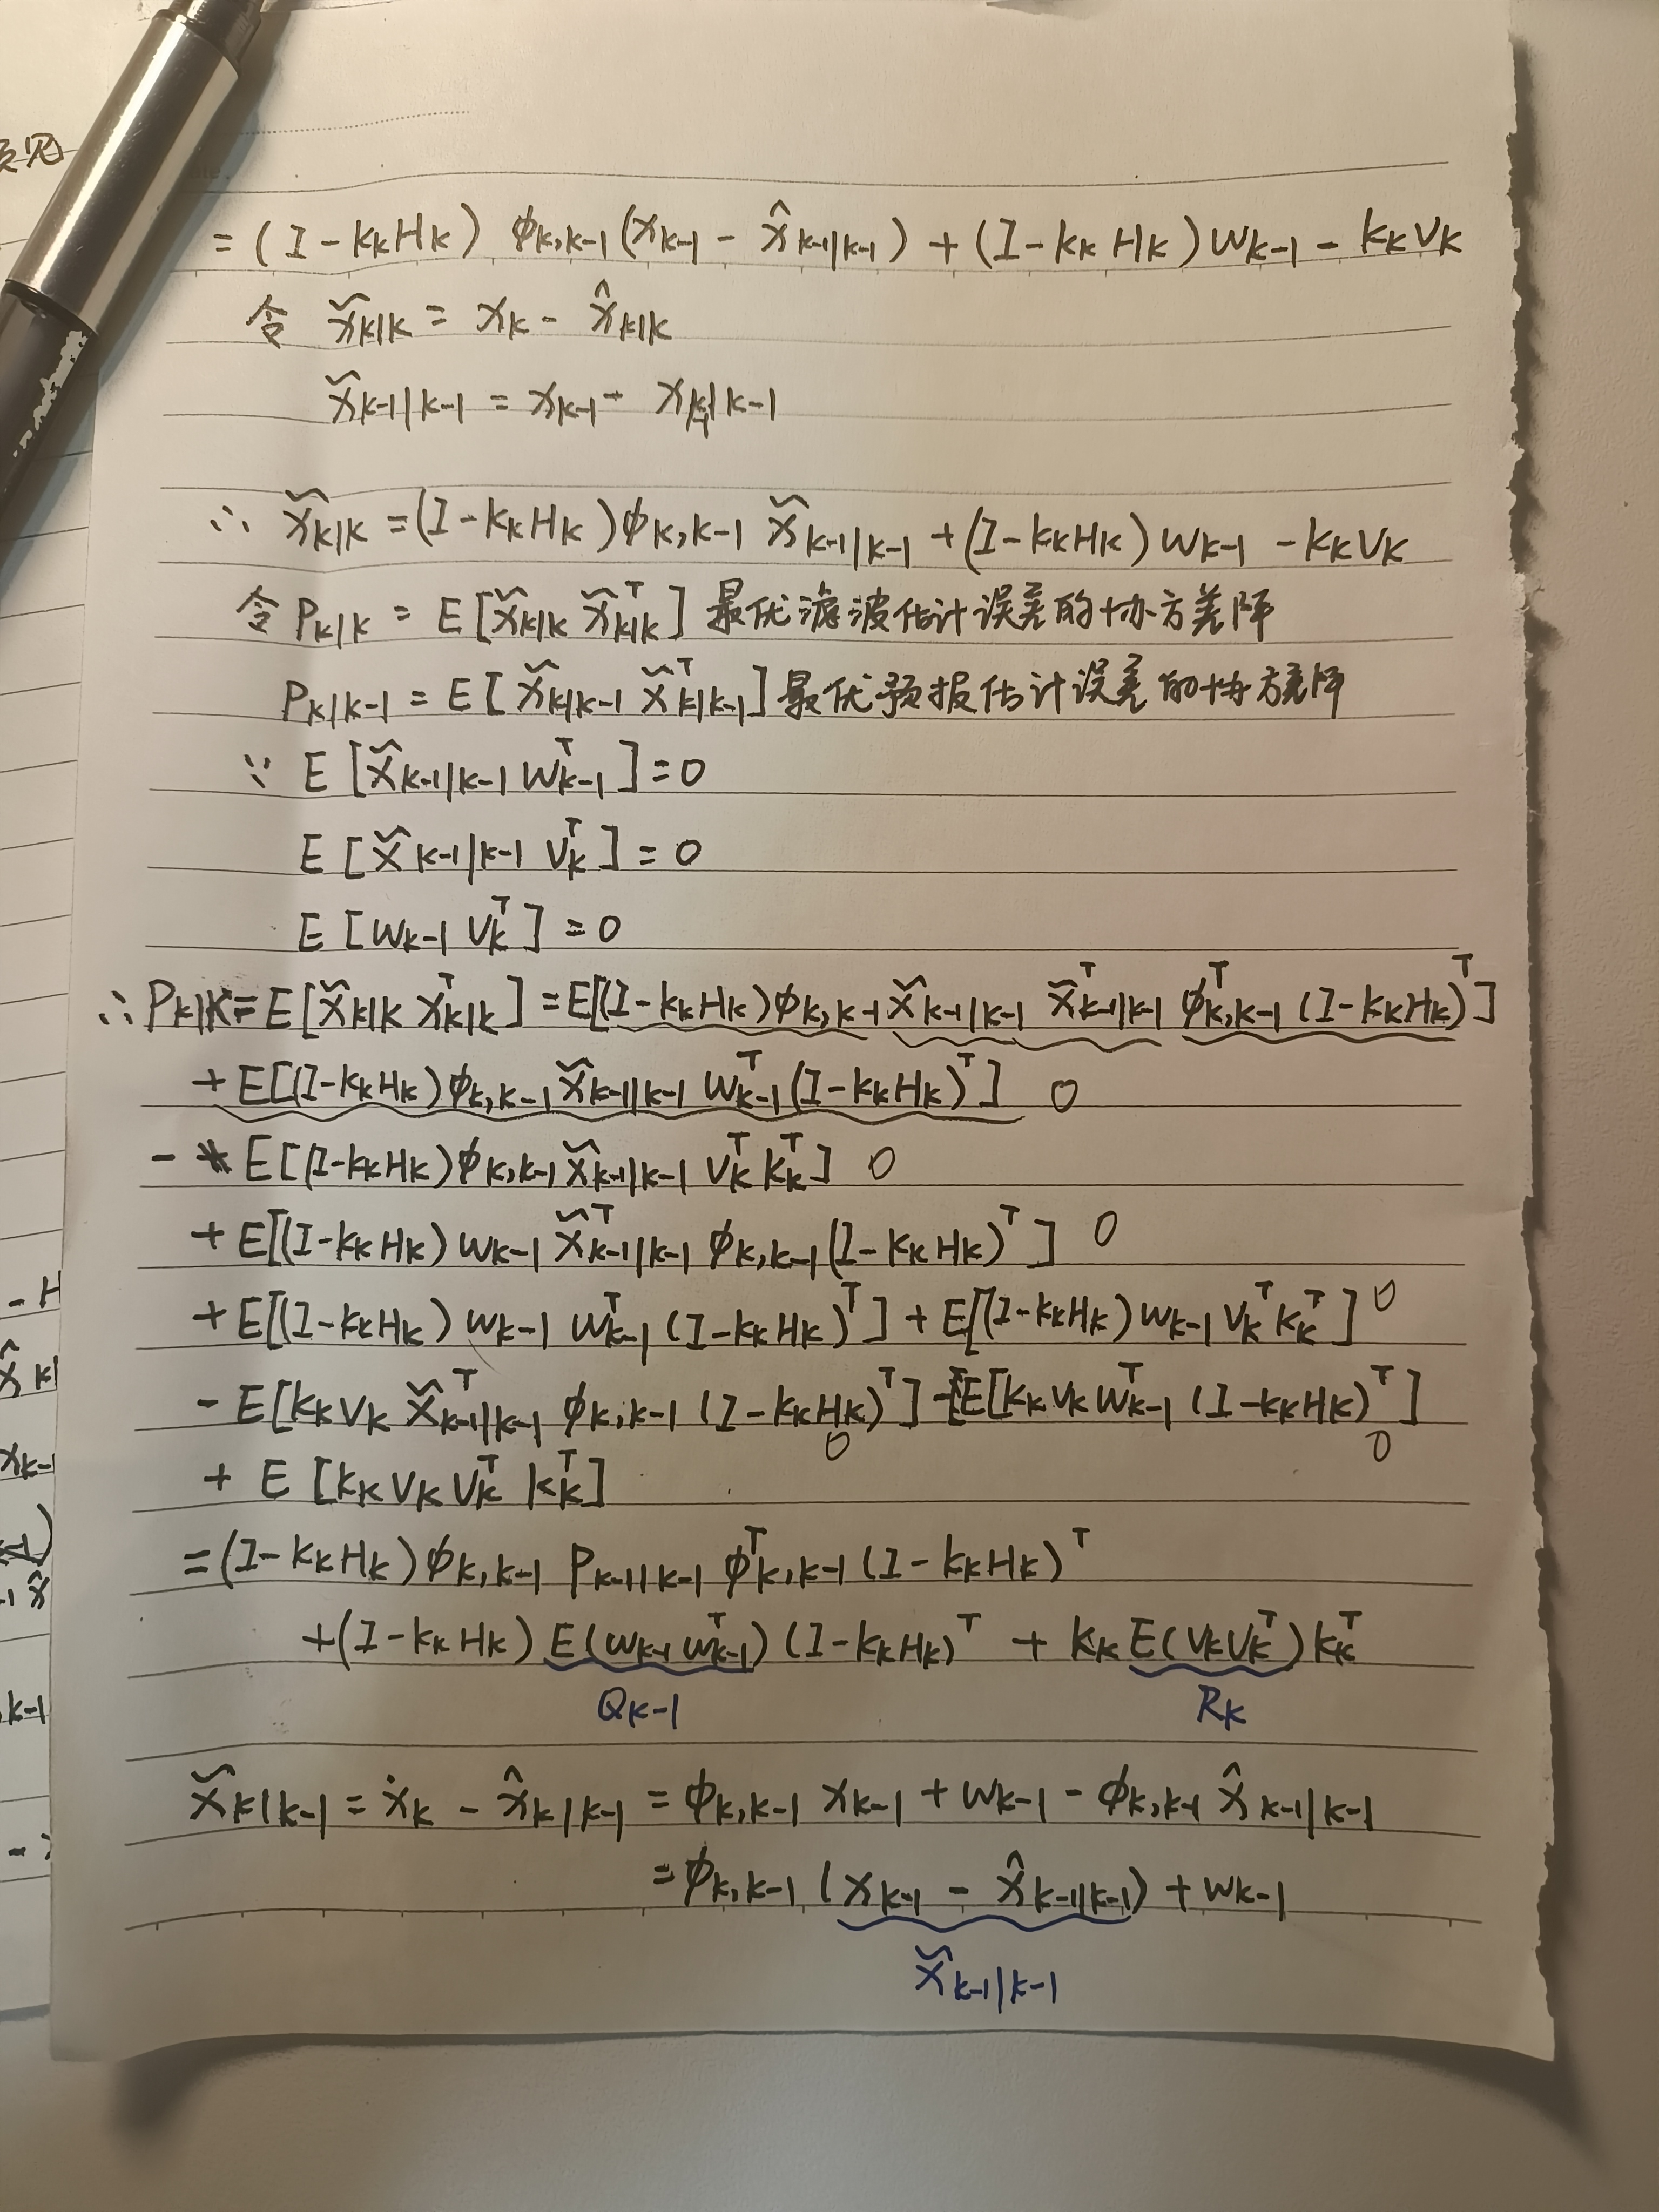 = (I - KkHk) ϕk,k-1 (xk-1 - x̂k-1|k-1) + (I - Kk Hk) wk-1 - Kk Vk
令 x̃k|k = xk - x̂k|k
x̃k-1|k-1 = xk-1 - xk-1|k-1
∴ x̃k|k = (I - KkHk) ϕk,k-1 x̃k-1|k-1 + (I - KkHk) wk-1 - Kk Vk
令 Pk|k = E[x̃k|k x̃ᵀk|k] 最优滤波估计误差的协方差阵
Pk|k-1 = E[x̃k|k-1 x̃ᵀk|k-1] 最优预报估计误差的协方差阵
∵ E[x̃k-1|k-1 wᵀk-1] = 0
E[x̃k-1|k-1 Vᵀk] = 0
E[wk-1 Vᵀk] = 0
∴ Pk|k = E[x̃k|k xᵀk|k] = E[(I - KkHk) ϕk,k-1 x̃k-1|k-1 x̃ᵀk-1|k-1 ϕᵀk,k-1 (I - KkHk)ᵀ]
+ E[(I - KkHk) ϕk,k-1 x̃k-1|k-1 wᵀk-1 (I - KkHk)ᵀ] 0
- E[(I - KkHk) ϕk,k-1 x̃k-1|k-1 Vᵀk Kᵀk] 0
+ E[(I - KkHk) wk-1 x̃ᵀk-1|k-1 ϕk,k-1 (I - KkHk)ᵀ] 0
+ E[(I - KkHk) wk-1 wᵀk-1 (I - KkHk)ᵀ] + E[(I - KkHk) wk-1 Vᵀk Kᵀk] 0
- E[Kk Vk x̃ᵀk-1|k-1 ϕk,k-1 (I - KkHk)ᵀ] - E[Kk Vk wᵀk-1 (I - KkHk)ᵀ]
0 0
+ E[Kk Vk Vᵀk Kᵀk]
= (I - KkHk) ϕk,k-1 Pk-1|k-1 ϕᵀk,k-1 (I - KkHk)ᵀ
+ (I - KkHk) E(wk-1 wᵀk-1) (I - KkHk)ᵀ + Kk E(Vk Vᵀk) Kᵀk
Qk-1 Rk
x̃k|k-1 = xk - x̂k|k-1 = ϕk,k-1 xk-1 + wk-1 - ϕk,k-1 x̂k-1|k-1
= ϕk,k-1 (xk-1 - x̂k-1|k-1) + wk-1
x̃k-1|k-1